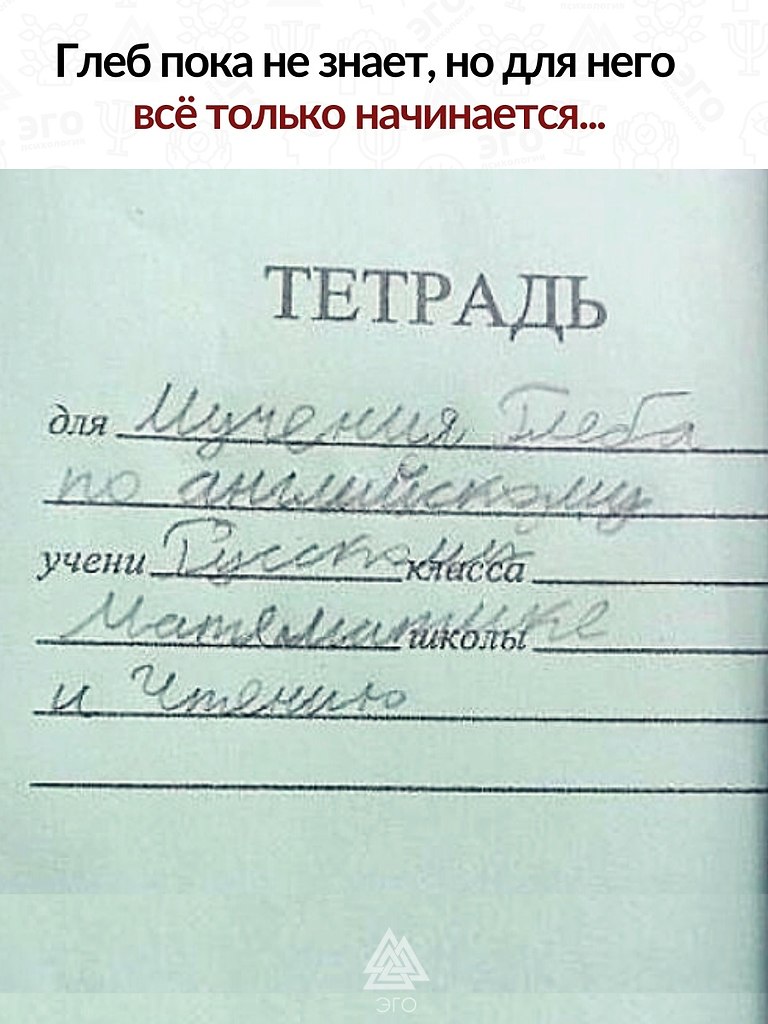 Глеб пока не знает, но для него
всё только начинается...
ЭГО
ПСИХОЛОГИИ
ТЕТРАДЬ
для Мучения Глеба
по английскому
учени Русскому класса
Математике школы
и Чтению
ЭГО